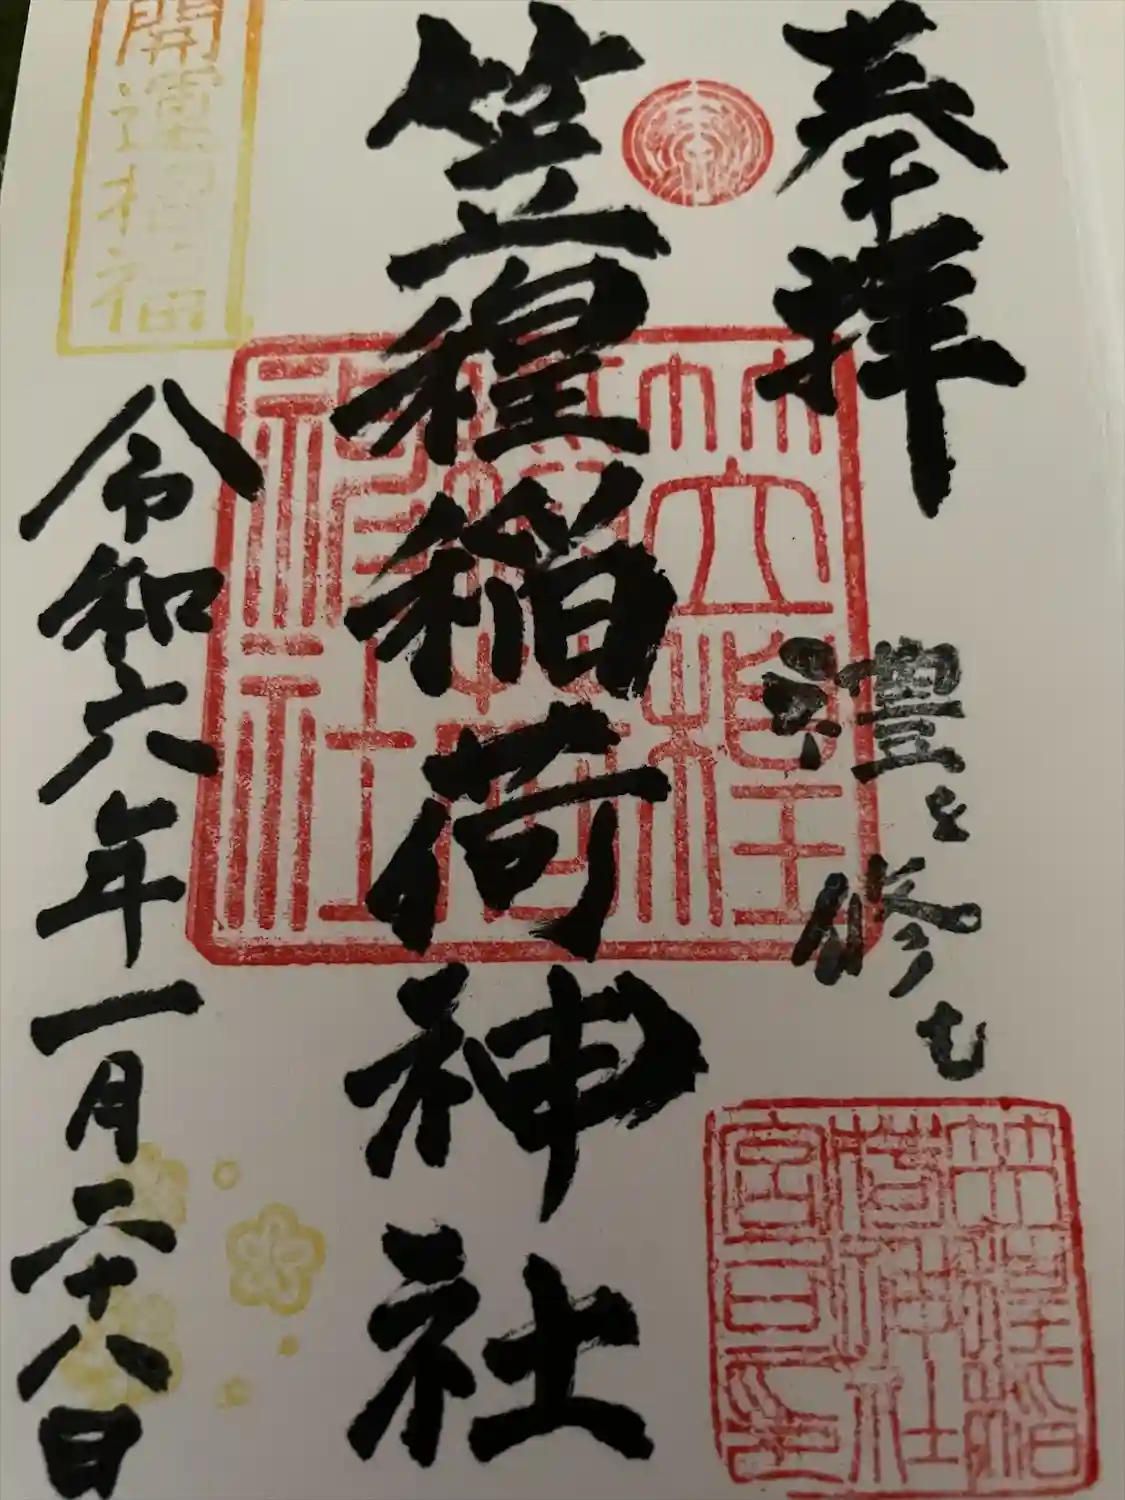 奉拝
禮を修む
笠䅣稲荷神社
令和六年一月二十八日
開運招福
笠䅣
稲荷
神社
笠䅣稲
荷神社
宮司之印